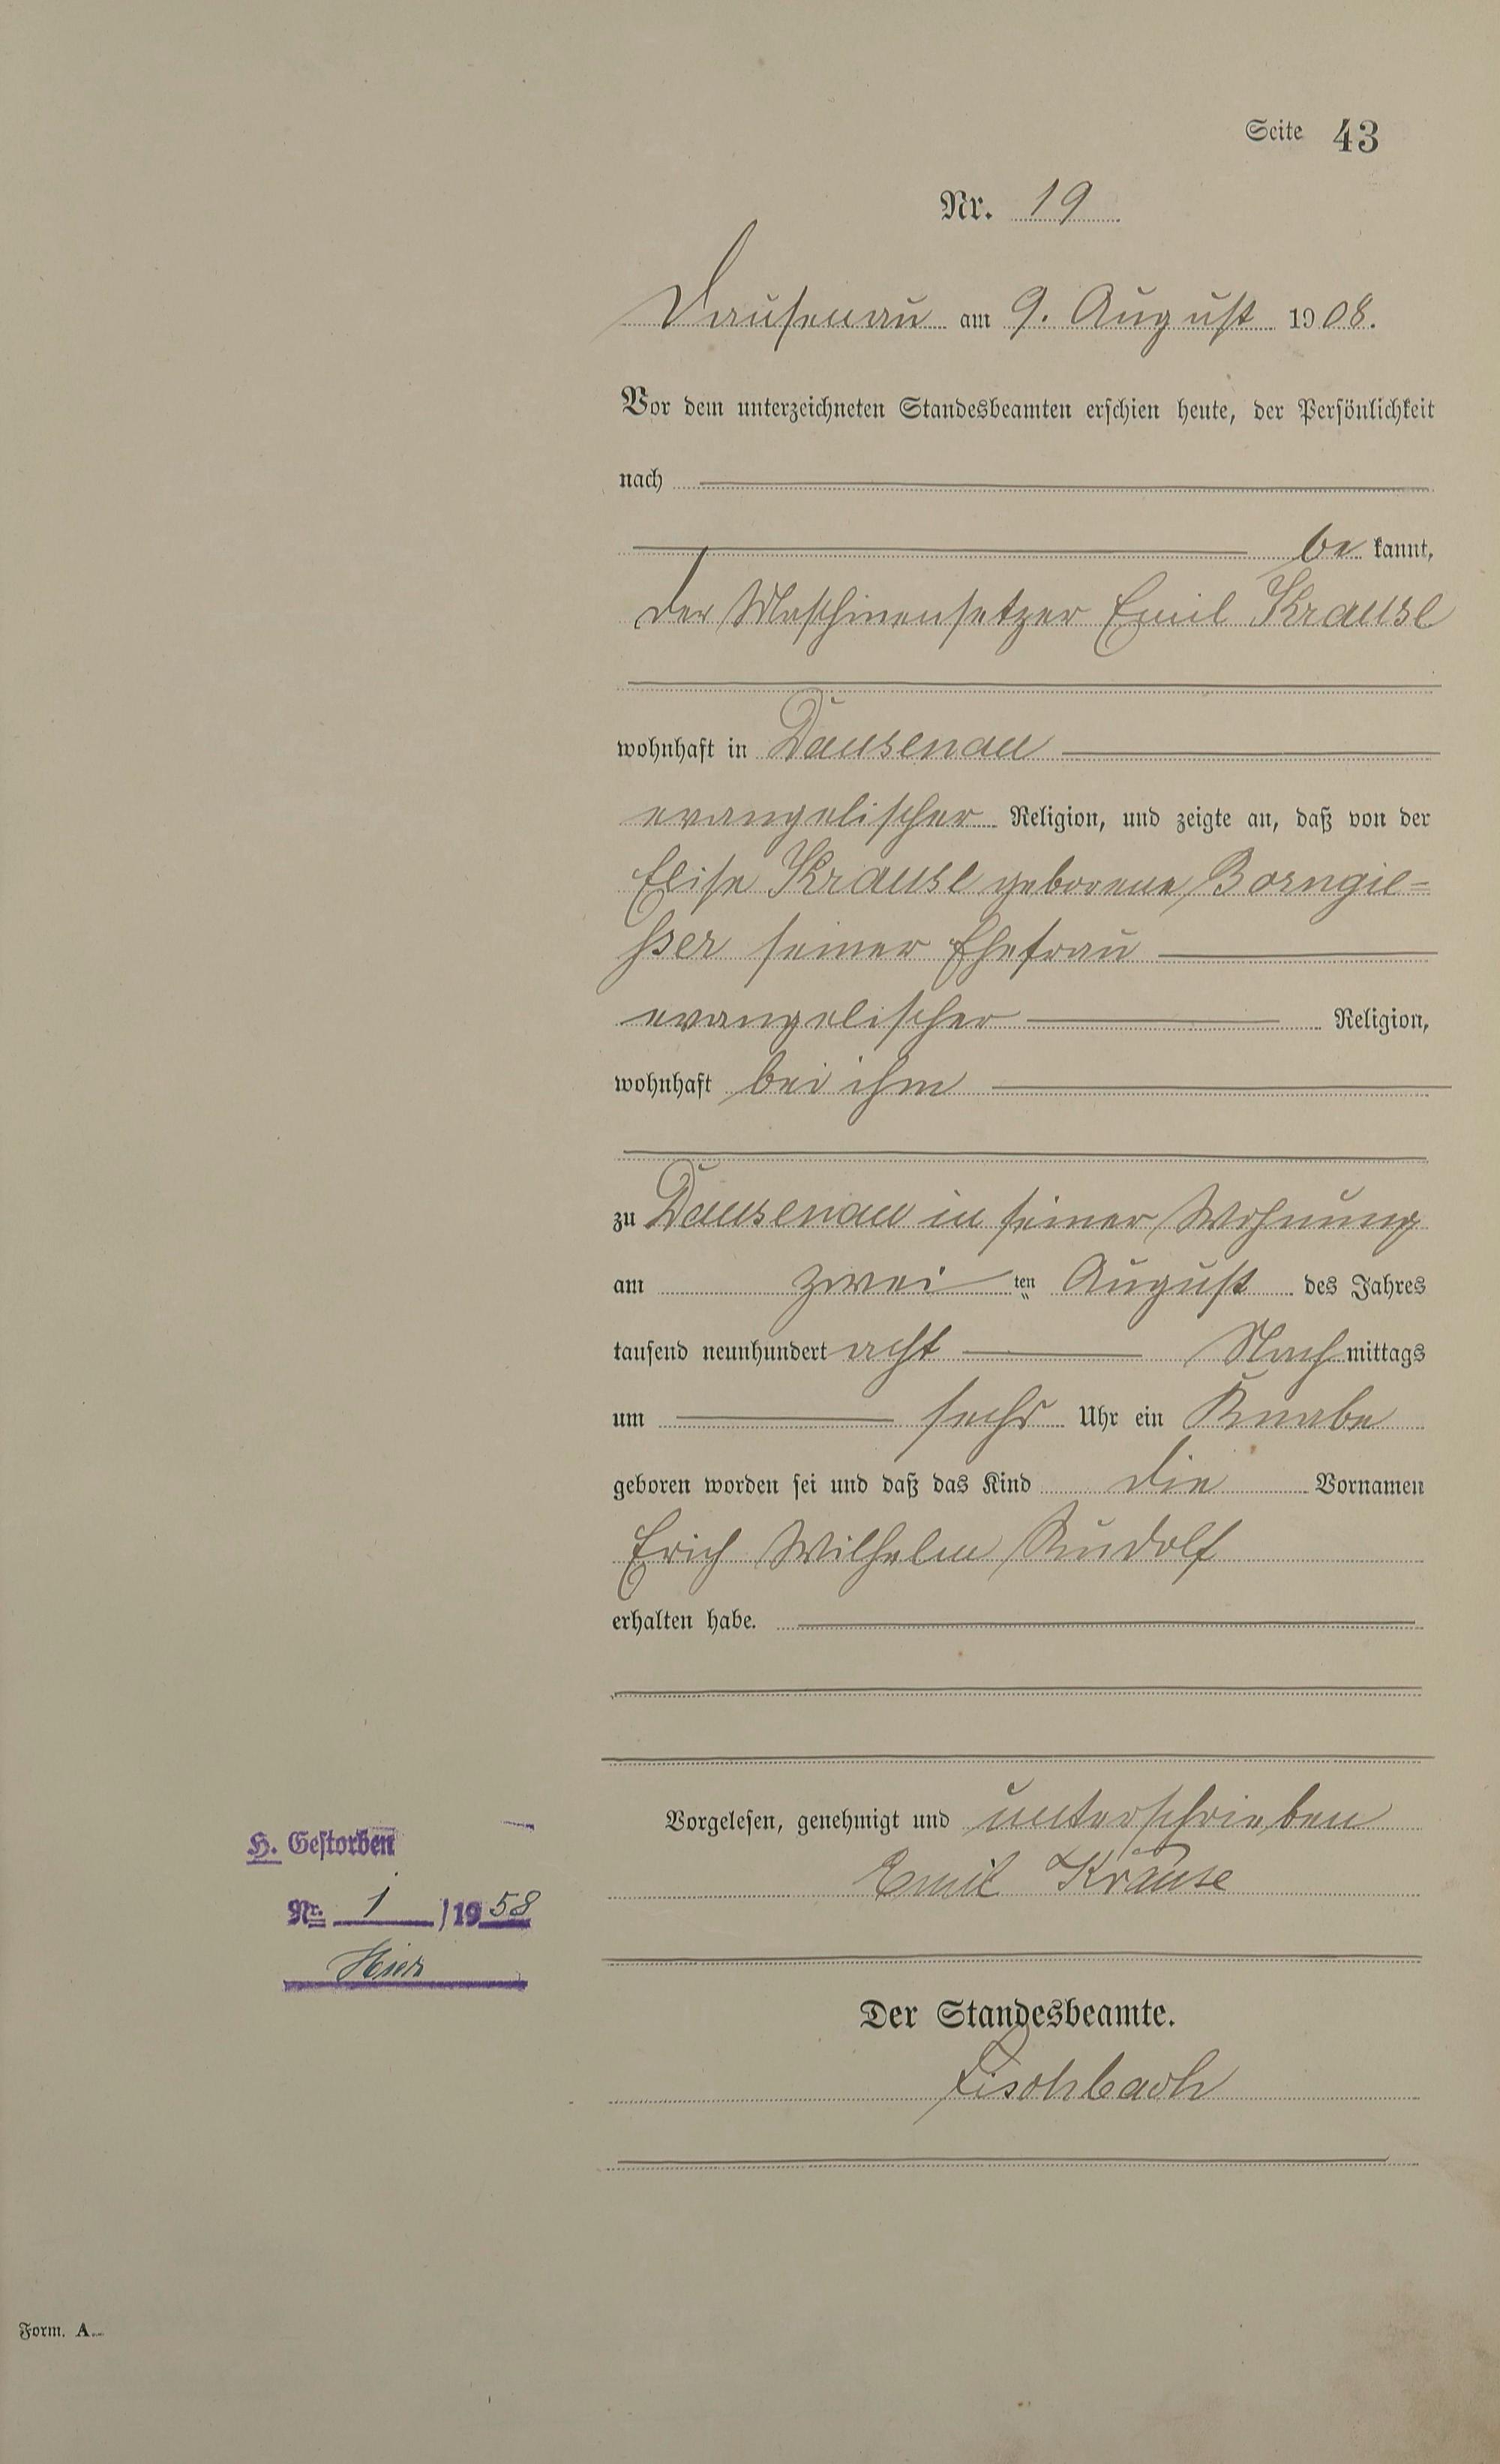 Seite 43
Nr. 19
Dausenau am 9. August 1908.
Vor dem unterzeichneten Standesbeamten erschien heute, der Persönlichkeit
nach
be kannt,
der Maschinensetzer Emil Krause
wohnhaft in Dausenau
evangelischer Religion, und zeigte an, daß von der
Elise Krause geborene Borngie-
ßer seiner Ehefrau
evangelischer Religion,
wohnhaft bei ihm
zu Dausenau in seiner Wohnung
am zwei ten August des Jahres
tausend neunhundert acht Nachmittags
um sechs Uhr ein Knabe
geboren worden sei und daß das Kind die Vornamen
Erich Wilhelm Rudolf
erhalten habe.
Vorgelesen, genehmigt und unterschrieben
Emil Krause
H. Gestorben
Nr. 1 /1958
Hier
Der Standesbeamte.
Fischbach
Form. A.